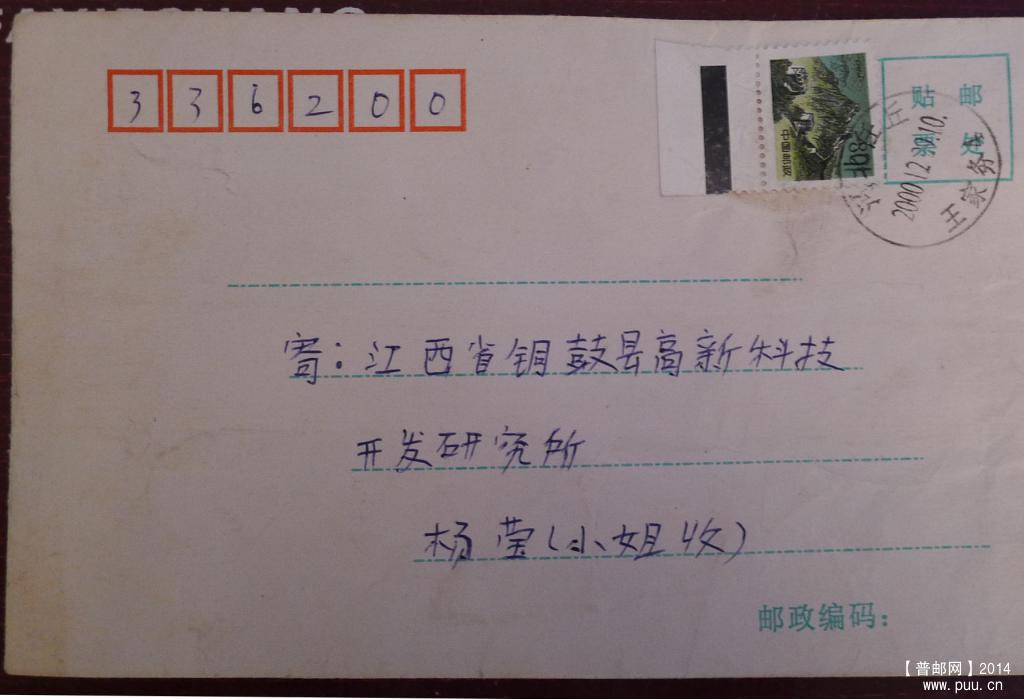 336200
贴 邮
票 处
中国邮政
河北任丘
2000.12.30.10.
王家务
寄:江西省铜鼓县高新科技
开发研究所
杨莹(小姐收)
邮政编码:
【普邮网】2014
www.puu.cn